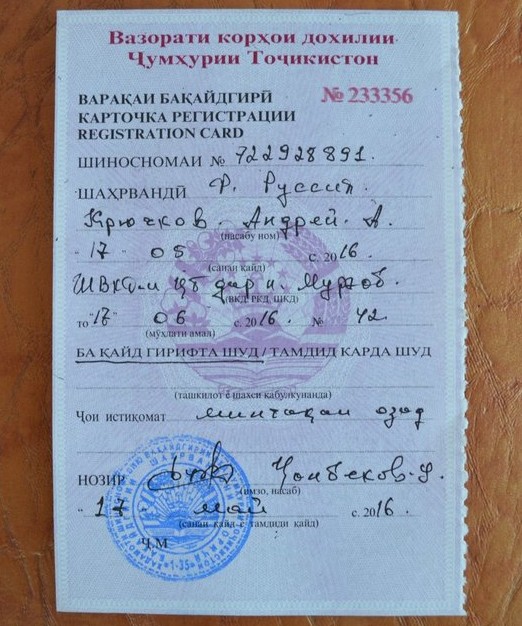 Вазорати корҳои дохилии
Ҷумҳурии Тоҷикистон
ВАРАҚАИ БАҚАЙДГИРӢ
КАРТОЧКА РЕГИСТРАЦИИ
REGISTRATION CARD
№ 233356
ШИНОСНОМАИ № 722928891.
ШАҲРВАНДӢ Ф. Руссия.
Крючков. Андрей. А.
(насабу ном)
"17" 05 с. 2016.
(санаи қайд)
ШВКД-и ҚБ дар н. Мурғоб.
(ВКД, РКД, ШКД)
то "17" 06 с. 2016. № 42.
(мӯҳлати амал)
БА ҚАЙД ГИРИФТА ШУД / ТАМДИД КАРДА ШУД
(ташкилот ё шахси қабулкунанда)
Ҷои истиқомат минтақаи озод
НОЗИР Ҷонбеков
(имзо, насаб)
"17" май с. 2016.
(санаи қайд ё тамдиди қайд)
Ҷ.М
"1-35"